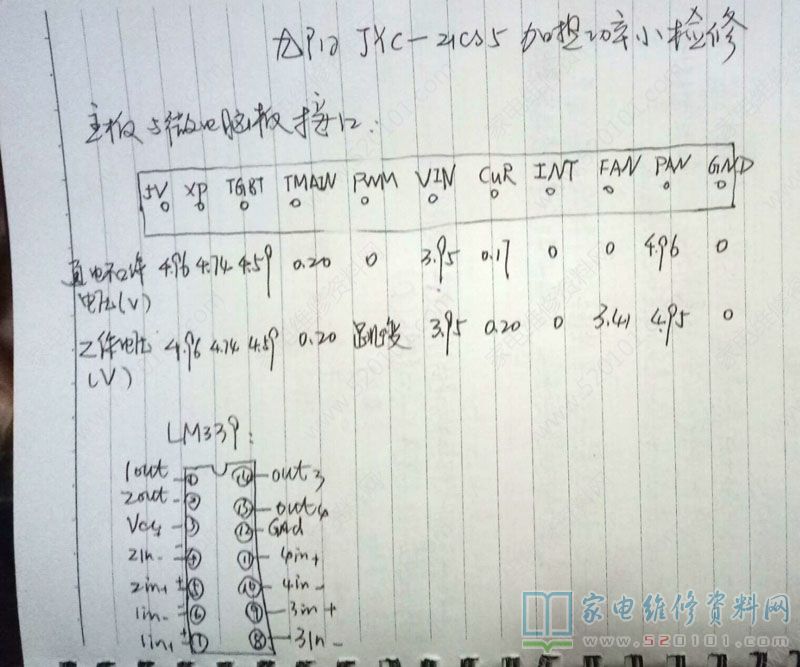 JYC-21CS5 加热功率小检修
主板与微电脑板接口:
5V XP IGBT TMAIN PWM VIN CUR INT FAN PAN GND
通电不工作 4.96 4.74 4.59 0.20 0 3.95 0.17 0 0 4.96 0
电压(V)
工作电压 4.96 4.74 4.59 0.20 跳变 3.95 0.20 0 3.41 4.95 0
(V)
LM339:
1out ① ⑭ out3
2out ② ⑬ out4
Vcc ③ ⑫ Gnd
2in- ④ ⑪ 4in+
2in+ ⑤ ⑩ 4in-
1in- ⑥ ⑨ 3in+
1in+ ⑦ ⑧ 3in-
家电维修资料网
www.520101.com